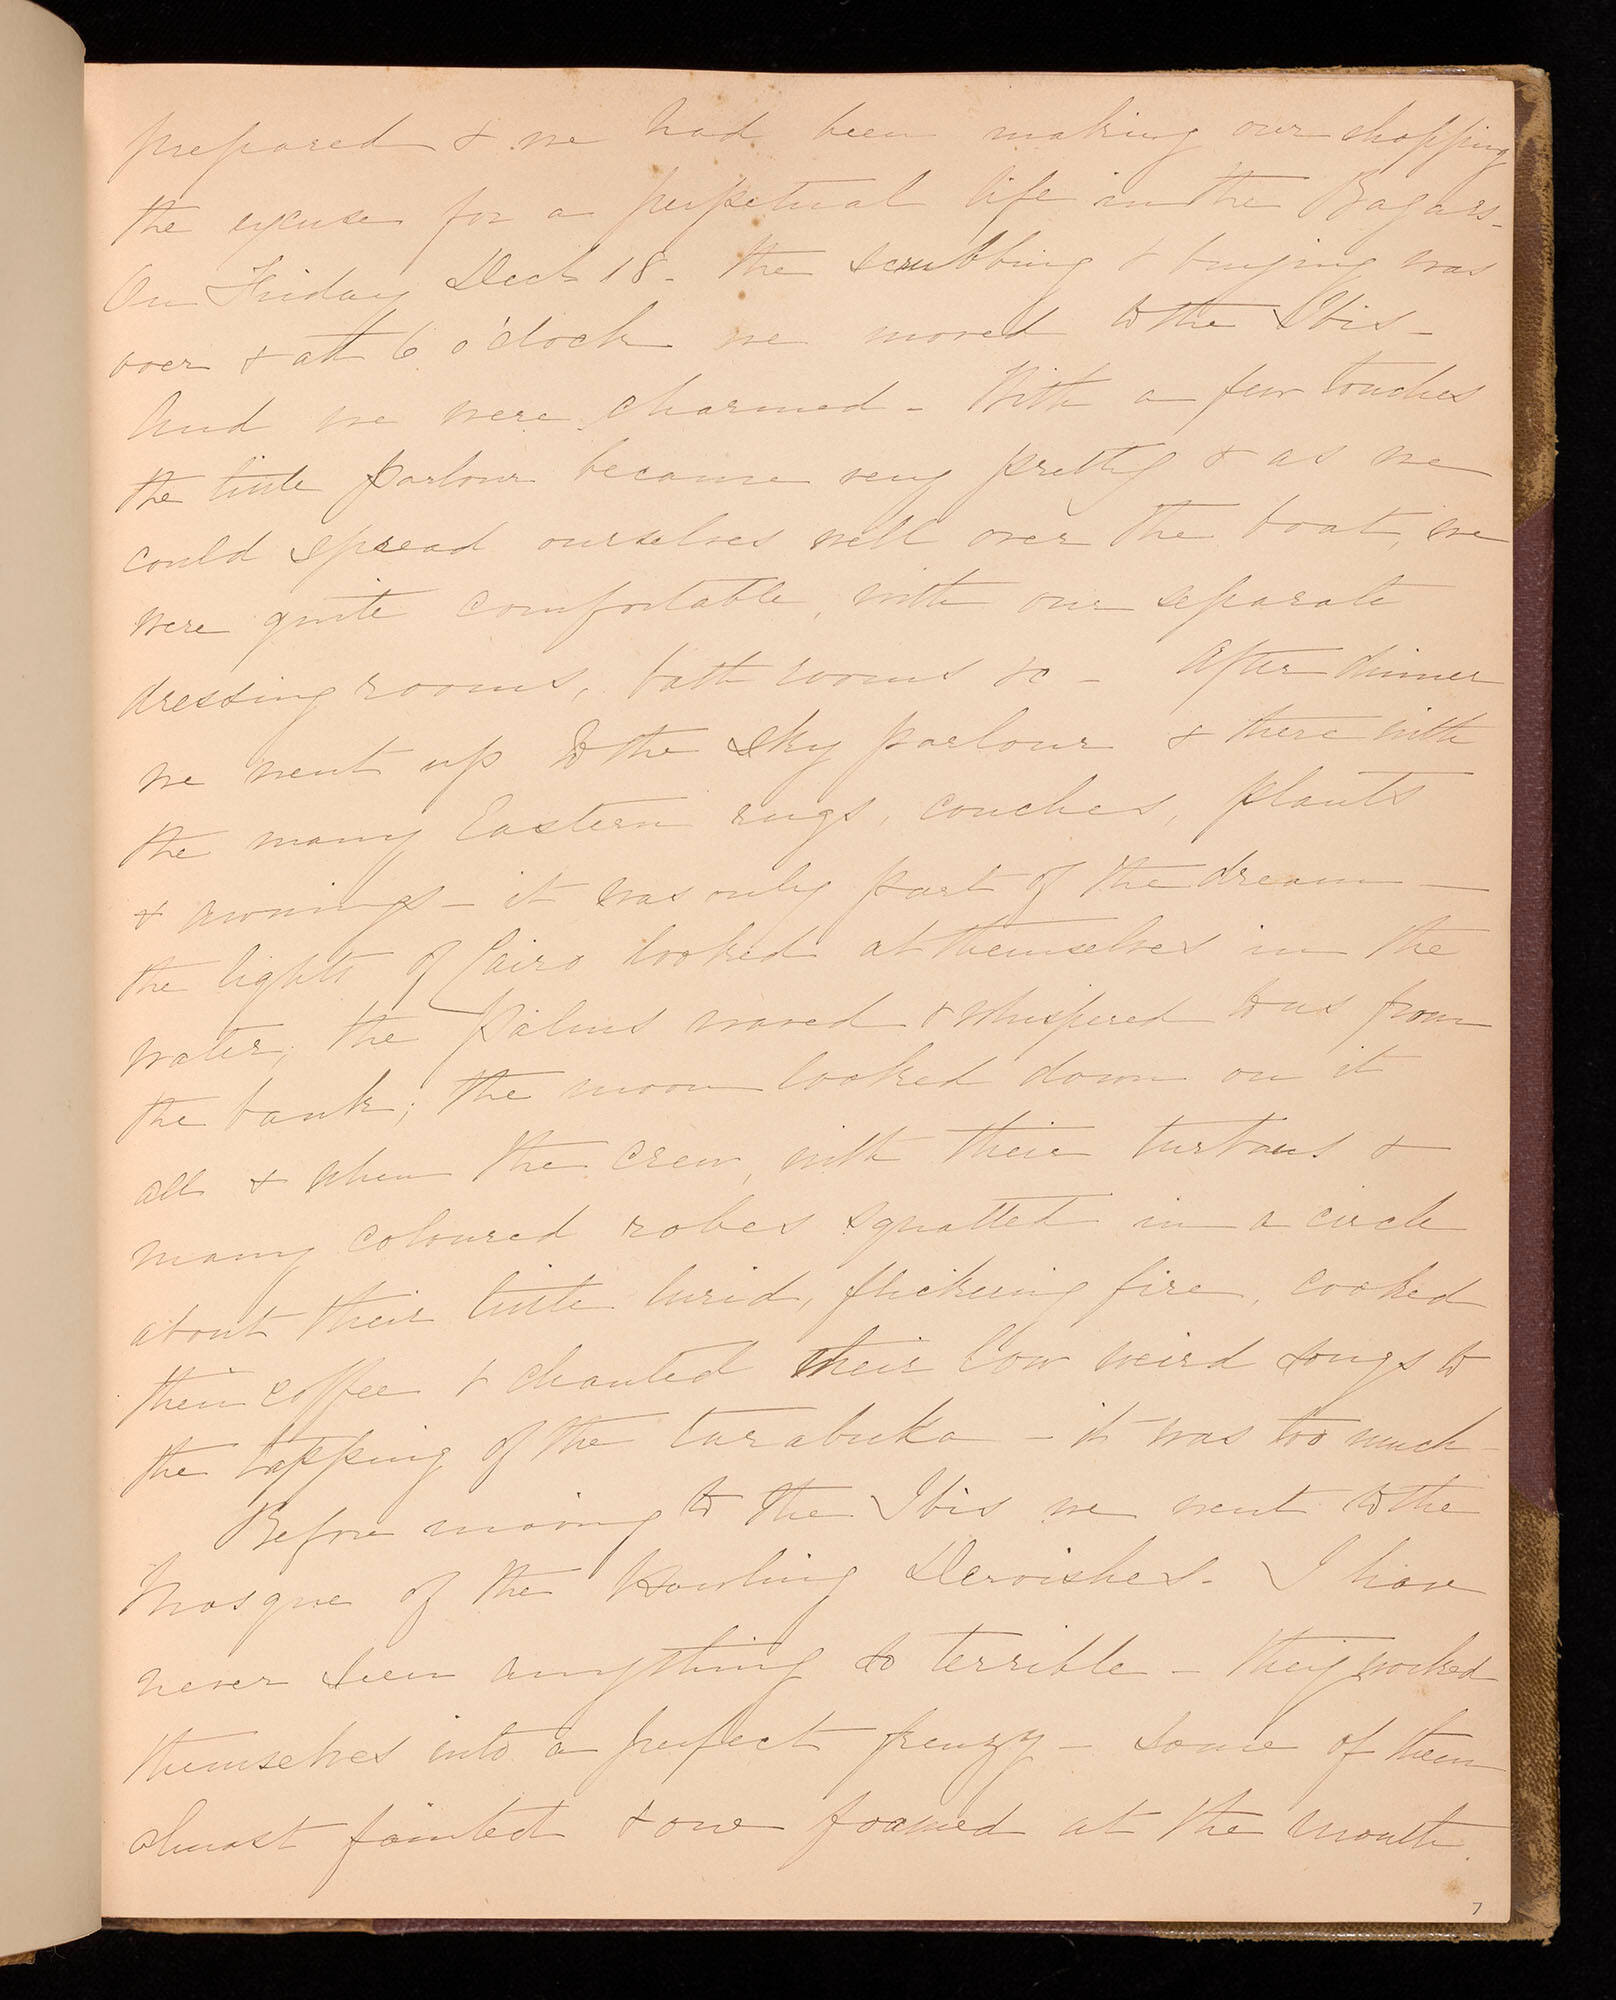 prepared & we had been making our shopping
the excuse for a perpetual life in the Bazars-
On Friday Dec 18 - the scrubbing & buying was
over & att 6 o'clock we moved to the Ibis -
And we were charmed - With a few touches
the little parlour became very pretty & as we
could spread ourselves well over the boat, we
were quite comfortable, with our separate
dressing rooms, bath rooms &c - After dinner
we went up to the sky parlour & there with
the many Eastern rugs, couches, plants
& awnings - it was only part of the dream -
the lights of Cairo looked at themselves in the
water, the palms waved & whispered to us from
the bank; the moon looked down on it
all & when the crew, with their turbans &
many coloured robes squatted in a circle
about their little lurid, flickering fire, cooked
their coffee & chanted their low weird songs to
the tapping of the tarabuka - it was too much -
Before moving to the Ibis we went to the
Mosque of the Howling Dervishes - I have
never seen anything so terrible - they worked
themselves into a perfect frenzy - some of them
almost fainted & one foamed at the mouth.
7